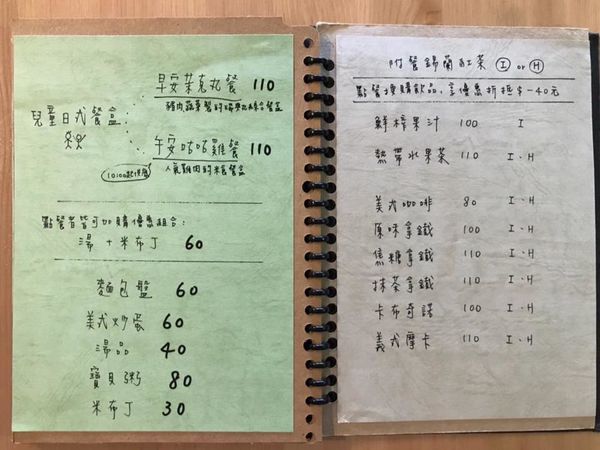 早安茱克丸餐 110
兒童日式餐盒:
午安咕咕雞餐 110
10:00起供應
人氣雞肉的米餐盒
點餐者皆可加購優惠組合:
湯 + 米布丁 60
麵包盤 60
美式炒蛋 60
湯品 40
寶貝粥 80
米布丁 30
附餐錫蘭紅茶 I or H
點餐換購飲品,享優惠折抵$-40元
鮮榨果汁 100 I
熱帶水果茶 110 I·H
美式咖啡 80 I·H
原味拿鐵 100 I·H
焦糖拿鐵 110 I·H
抹茶拿鐵 110 I·H
卡布奇諾 100 I·H
義式摩卡 110 I·H